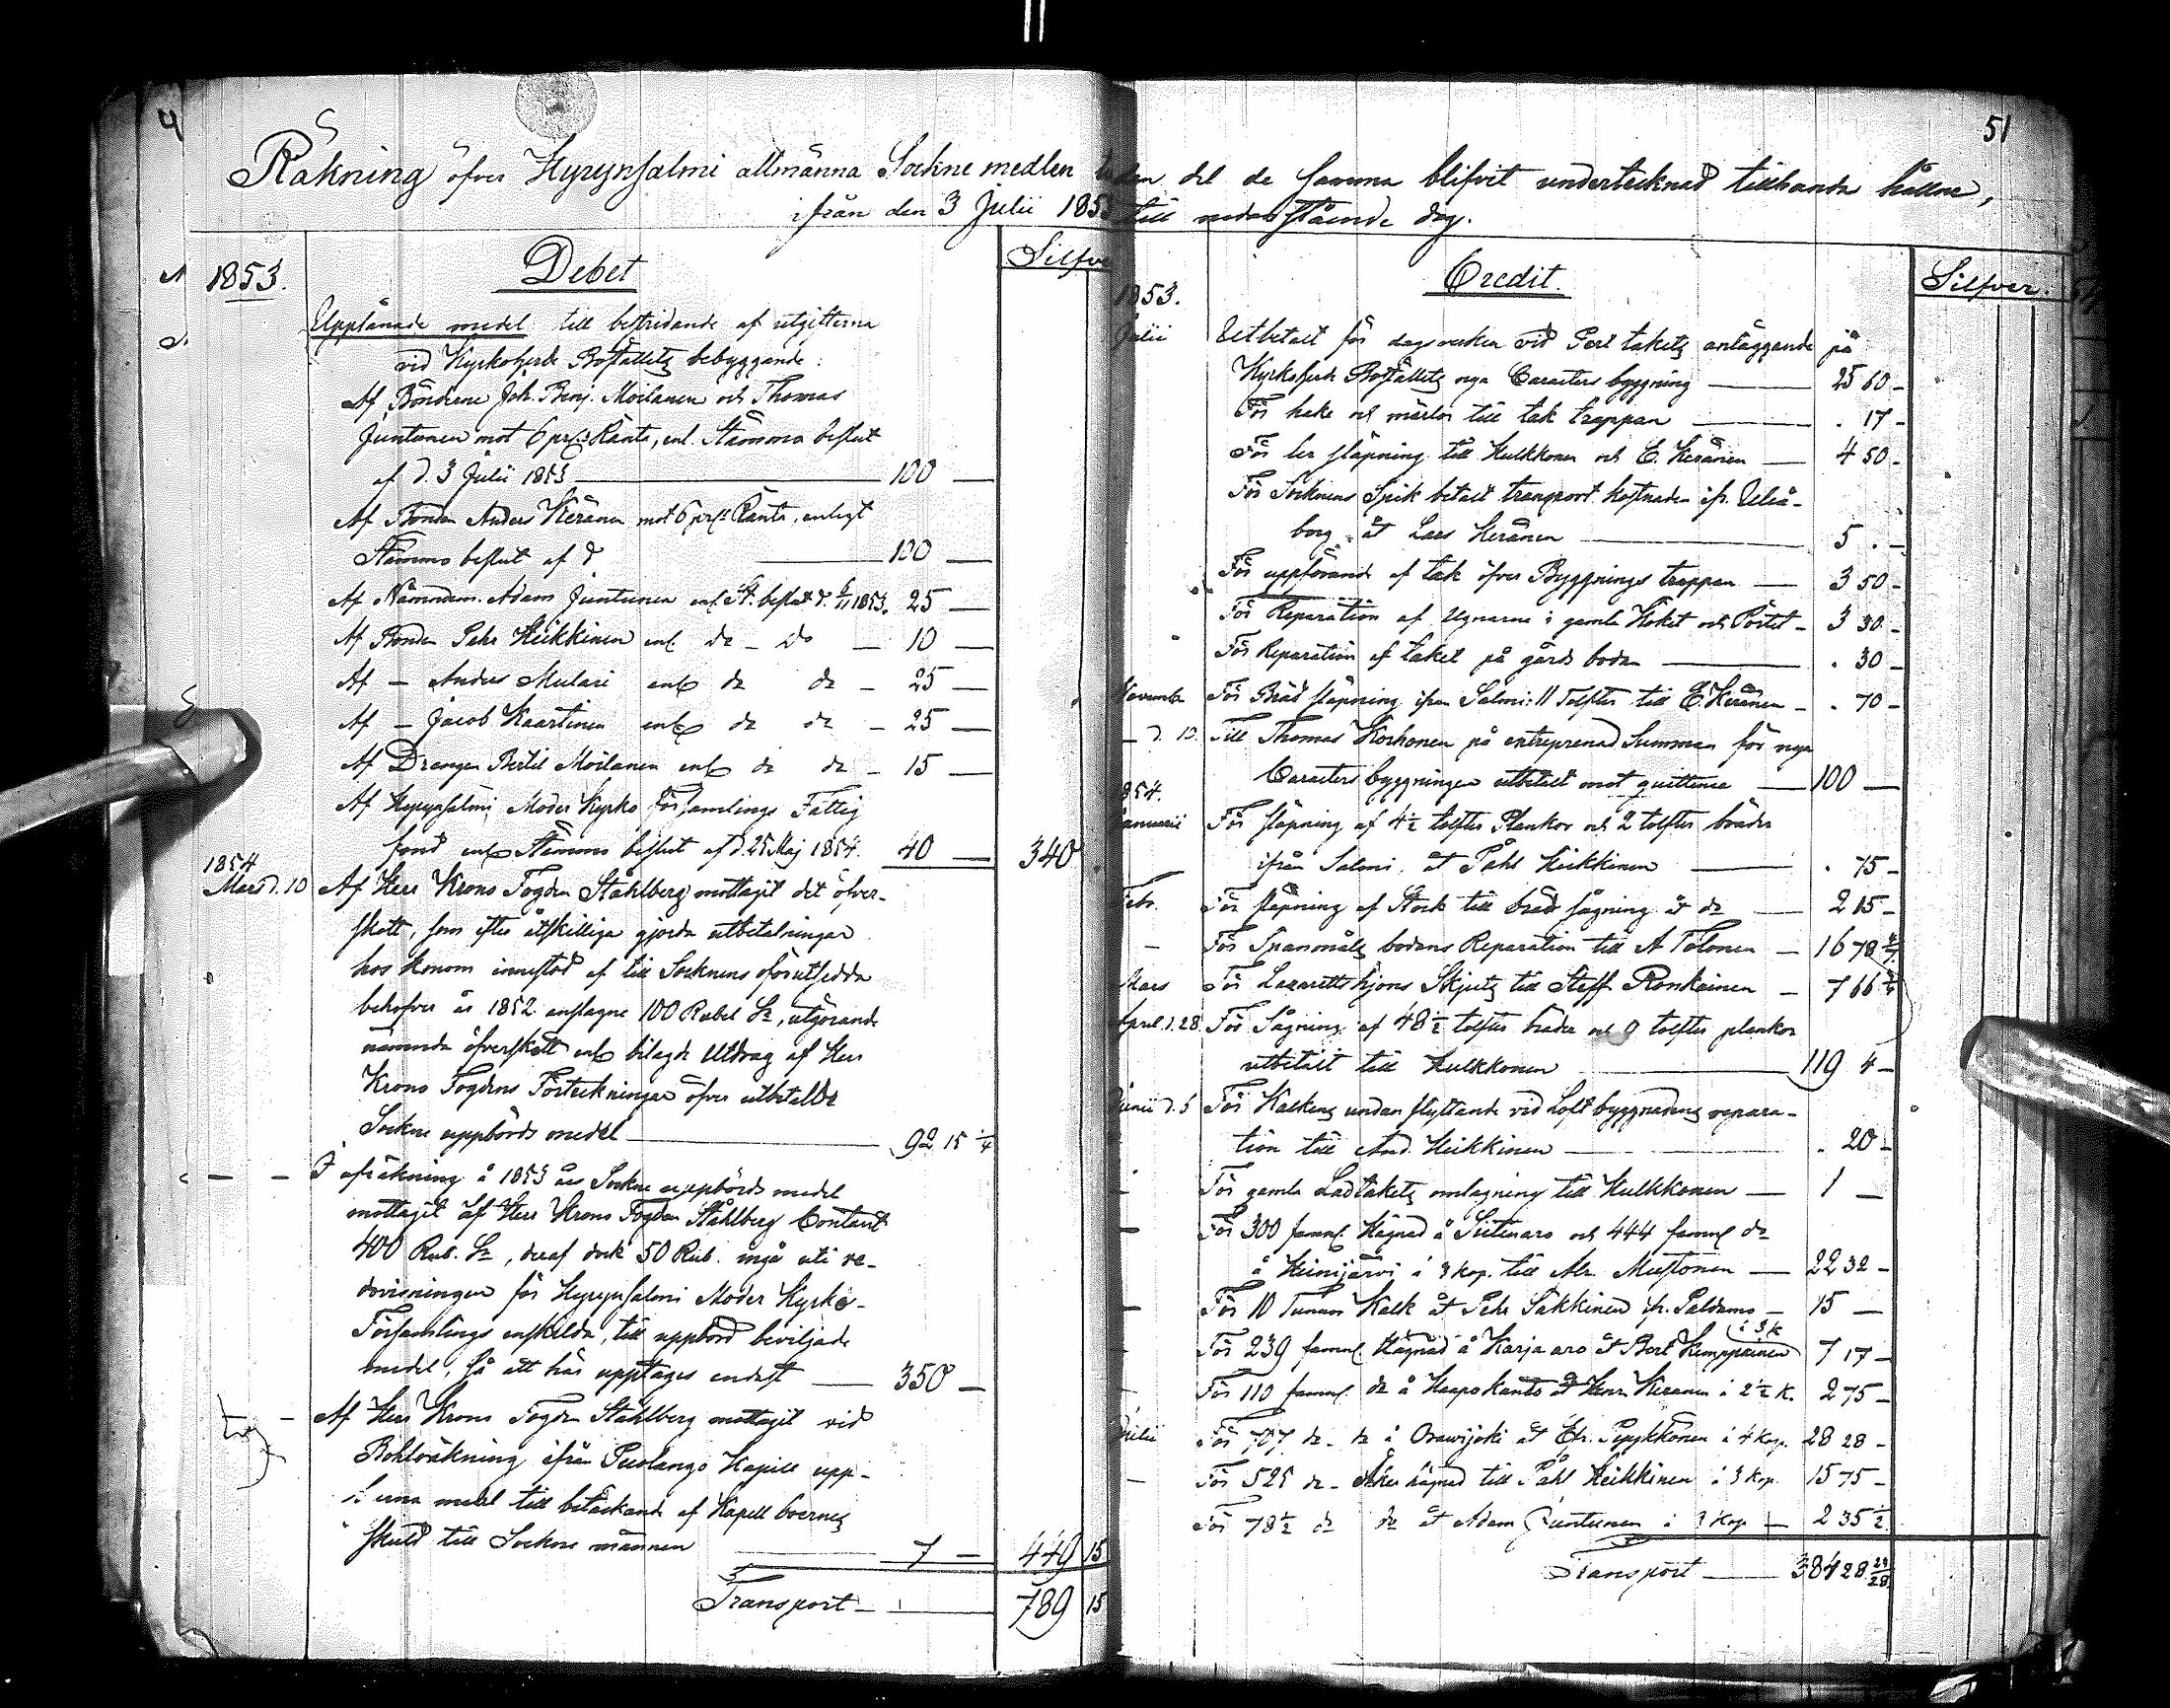 51
Räkning öfver Hyrynsalmi allmänna Sockne medlen del de samma blifvit undertecknad tillhanda hållne,
ifrån den 3 Julii 1853 till nedanstående dag.
1853.
Debet
Silfve
Upplånade medel till bestridande af utgifterna
vid Kyrkoherde Boställets bebyggande:
Af Bönderne Joh. Benj. Moilanen och Thomas
Juntunen mot 6 prC: Ränta, enl. Stämmo beslut
af d. 3 Julii 1853 100 —
Af Bonden Anders Keränen mot 6 prCt Ränta, enligt
Stämmo beslut af d 100 —
Af Nämndem. Adam Juntunen enl. St. beslut d. 1853. 25 —
Af Bonden Pehr Heikkinen enl. do — do — 10 —
Af — Anders Mulari enl do do — 25 —
Af — Jacob Kaartinen enl do do — 25 —
Af Drängen Bertil Moilanen enl do do — 15 —
Af Hyrynsalmi Moder Kyrko Församlings Fattig
fond enl Stämmo beslut af d. 25 Maj 1854. 40 — 340
1854
Mars d. 10 Af Herr Krono Fogden Ståhlberg mottagit det öfver-
skott, som efter åtskilliga gjorda utbetalningar
hos honom innestod af till Socknens oförutsedda
behofver år 1852 anslagne 100 Rubel Sr, utgörande
nämnda öfverskott enl bilagde Utdrag af Herr
Krono Fogdens Förteckningar öfver utbetallde
Sockne uppbörds medel 92 15 1/4
— — I afräkning å 1853 års Sockne uppbörds medel
mottagit af Herr Krono Fogden Ståhlberg Contant
400 Rub. Sr, deraf dock 50 Rub. ingå uti re-
dovisningen för Hyrynsalmi Moder Kyrko-
Församlings enskilda, till uppbörd beviljade
medel, så att här upptages endast — 350 —
— Af Herr Krono Fogden Ståhlberg mottagit vid
räkning ifrån Puolango Kapell upp-
medel till betäckande af Kapell boernes
skuld till Sockne männen 7 — 449 15
Transport — 789 15
1853.
Credit.
Silfver.
Julii Utbetalt för dagsverken vid Pert takets anläggande på
Kyrkoherde Boställets nya Caracters byggning — 25 60 —
För hake och märlor till tak trappan — . 17 —
För ler släpning till Kulkkonen och E. Keränen — 4 50 —
För Socknens Spik betalt transport kostnaden ifr. Uleå-
borg åt Lars Keränen — 5 . —
För uppförande af tak öfver Byggnings trappan — 3 50 —
För Reparation af Ugnarne i gamla Köket och Pörtet — 3 30 —
För Reparation af taket på gårds boden — . 30 —
Novembr För Bräd släpning ifrån Salmi: 11 Tolfter till E. Keränen — . 70 —
— d. 13. Till Thomas Korhonen på entreprenad Summan för nya
Caracters byggningen utbetalt mot quittence — 100 —
1854.
Januarii För släpning af 4 1/2 tolfter Plankor och 2 tolfter bräder
ifrån Salmi, åt Påhl Heikkinen — . 75 —
Febr. För släpning af Stock till bräd sågning åt do — 2 15 —
— För Spanmåls bodans Reparation till A Tolonen — 16 78
Mars För Lazaretts hjons Skjuts till Steff. Ronkainen — 7 66
April d. 28. För Sågning af 48 1/2 tolfter bräder och 9 tolfter plankor
utbetalt till Kulkkonen — 119 4 —
Junii d. 5 För Kalkens undan flyttande vid Loft byggnadens repara-
tion till And. Heikkinen — . 20 —
— För gamla Ladtakets omlagning till Kulkkonen — 1 —
— För 300 famn. Hägnad å Siitinaro och 444 famn do
å Heinijärvi à 3 kop. till Alr. Mustonen — 22 32 —
— För 10 Tunnor Kalk åt Pehr Säkkinen ifr. Paldamo — 15 —
à 3 k
— För 239 famn Hägnad å Karja aro åt Bert Kemppainen 7 17 —
— För 110 famn. do å Haapokanto åt Henr Keränen à 2 1/2 k. 2 75 —
Julii För 707 do — do å Orawijoki åt Efr. Pyykkönen à 4 kop. 28 28 —
— För 525 do — Åker hägnad till Påhl Heikkinen à 3 kop. 15 75 —
För 78 1/2 do do åt Adam Juntunen à 3 kop — 2 35 1/2
Transport — 384 28